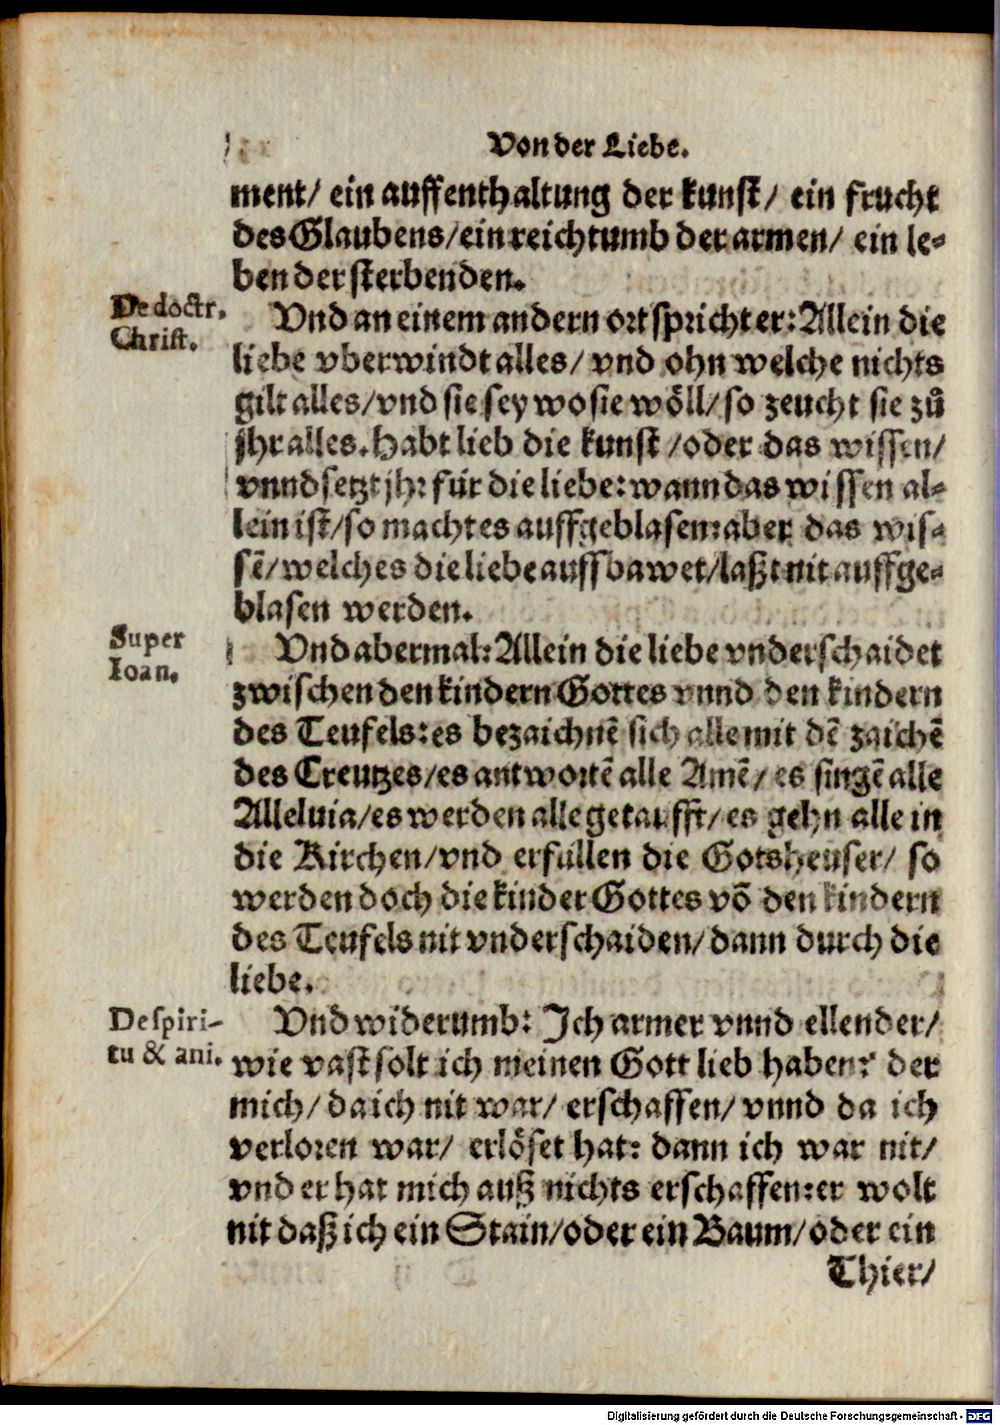 Von der Liebe.
ment/ ein auffenthaltung der kunst/ ein frucht
des Glaubens/ein reichtumb der armen/ ein le-
ben der sterbenden.
De doctr.
Christ.
Vnd an einem andern ort spricht er: Allein die
liebe vberwindt alles/ vnd ohn welche nichts
gilt alles/vnd sie sey wo sie wöll/ so zeucht sie zů
jhr alles. Habt lieb die kunst /oder das wissen/
vnnd setzt jhr für die liebe: wann das wissen al-
lein ist/so macht es auffgeblasen: aber das wis-
sē/welches die liebe auffbawet/laßt nit auffge-
blasen werden.
Super
Ioan.
Vnd abermal: Allein die liebe vnderschaidet
zwischen den kindern Gottes vnnd den kindern
des Teufels: es bezaichnē sich alle mit dē zaichē
des Creutzes/es antwortē alle Amē/ es singē alle
Alleluia/es werden alle getaufft/ es gehn alle in
die Kirchen/vnd erfüllen die Gotsheuser/ so
werden doch die kinder Gottes võ den kindern
des Teufels nit vnderschaiden/ dann durch die
liebe.
De spiri-
tu & ani.
Vnd widerumb: Ich armer vnnd ellender/
wie vast solt ich meinen Gott lieb haben? der
mich/ da ich nit war/ erschaffen/ vnnd da ich
verloren war/ erlöset hat: dann ich war nit/
vnd er hat mich auß nichts erschaffen: er wolt
nit daß ich ein Stain/oder ein Baum/ oder ein
Thier/
Digitalisierung gefördert durch die Deutsche Forschungsgemeinschaft - DFG